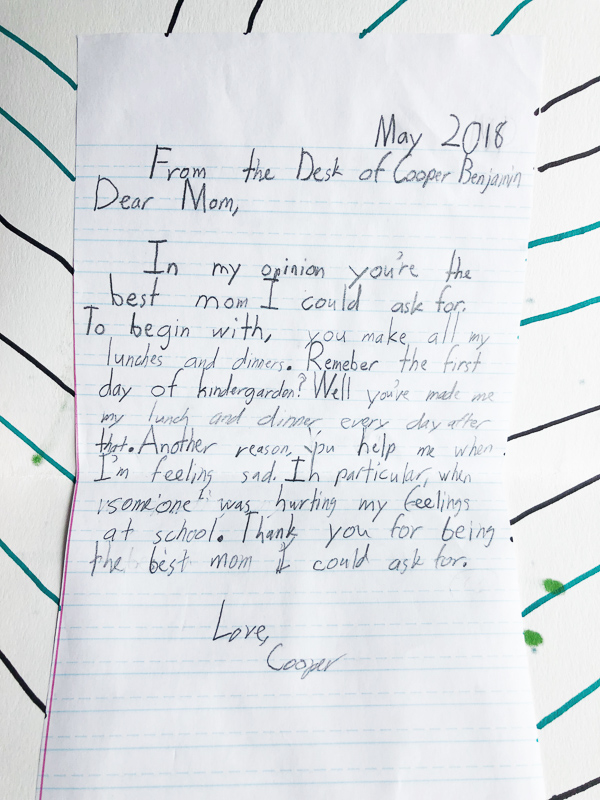 May 2018
From the Desk of Cooper Benjamin
Dear Mom,
In my opinion you're the
best mom I could ask for.
To begin with, you make all my
lunches and dinners. Remeber the first
day of kindergardon? Well you've made me
my lunch and dinner every day after
that. Another reason, you help me when
I'm feeling sad. In particular, when
someone was hurting my feelings
at school. Thank you for being
the best mom I could ask for.
Love,
Cooper